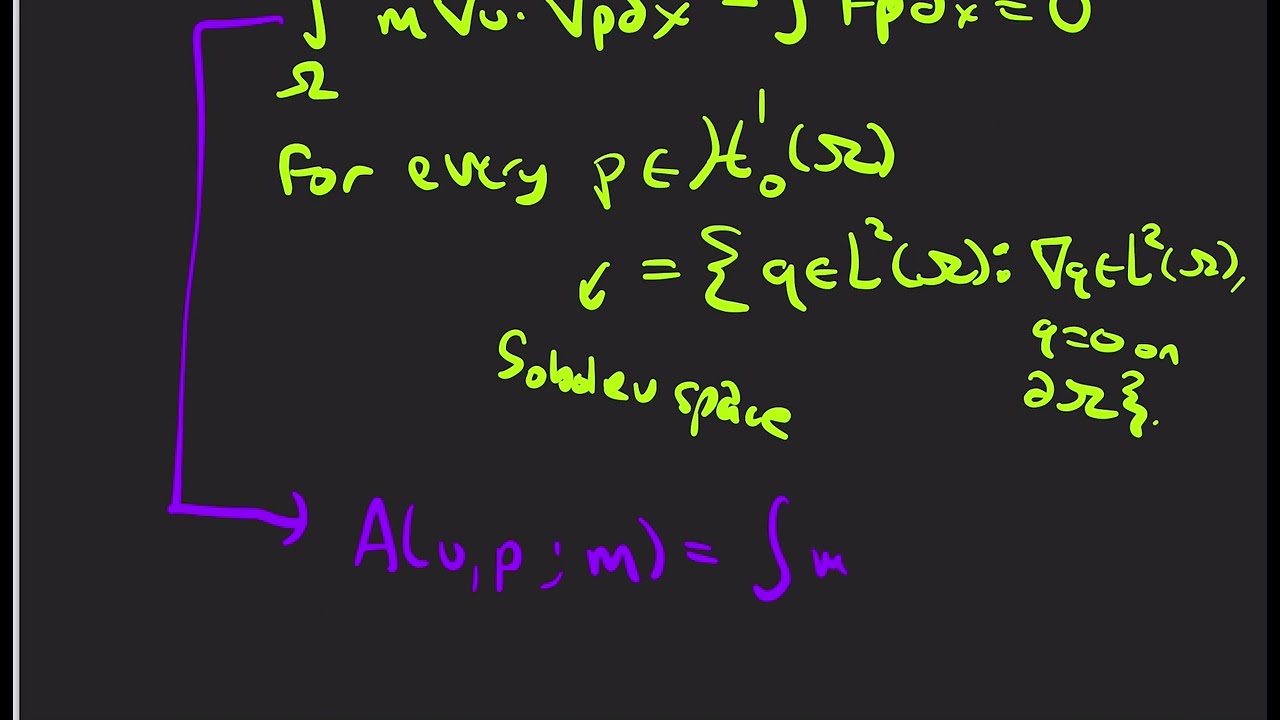 ∫ m∇u·∇p∂x - ∫ Fp∂x = 0
Ω
for every p ∈ H¹₀(Ω)
= { q ∈ L²(Ω): ∇q ∈ L²(Ω),
q=0 on
∂Ω}.
Sobolev space
A(u,p;m) = ∫ m